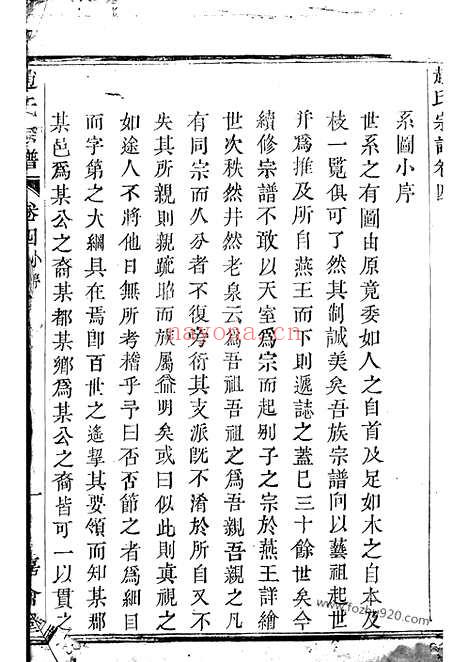 趙氏宗譜卷四
系圖小序
世系之有圖由原竟委如人之自首及足如木之自本及
枝一覽俱可了然其制誠美矣吾族宗譜向以藝祖起世
幷爲推及所自燕王而下則遞誌之蓋已三十餘世矣今
續修宗譜不敢以天室爲宗而起别子之宗於燕王詳繪
世次秩然井然老泉云爲吾祖吾祖之爲吾親吾親之凡
有同宗而久分者不復旁衍其支派旣不淆於所自又不
失其所親則親疏昭而族屬益明矣或曰似此則眞視之
如途人不將他日無所考稽乎予曰否否節之者爲綱目
而字第之大綱具在焉卽百世之遙挈其要領而知某郡
某邑爲某公之裔某都某鄉爲某公之裔皆可一以貫之
趙氏宗譜
卷四 小序
一
nayona.cn
www.fozhu920.com